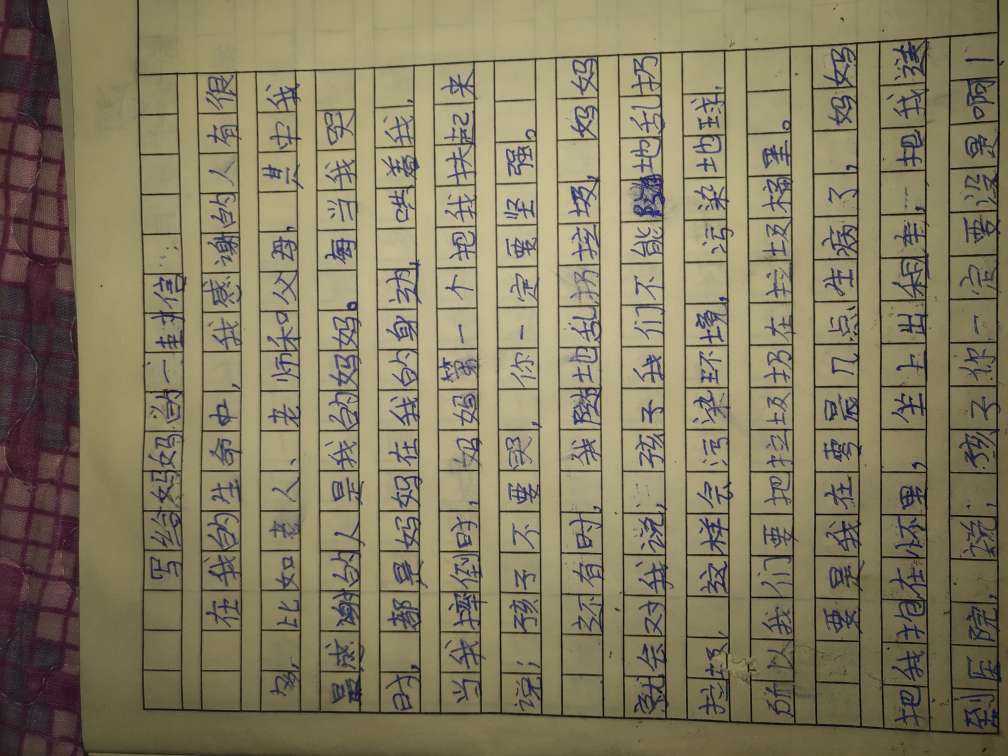 写给妈妈的一封信:
在我的生命中,我感谢的人有很
多,比如老人、老师和父母,其中我
最感谢的人是我的妈妈。每当我哭
时,都是妈妈在我的身边,哄着我,
当我摔倒时,妈妈第一个把我扶起来
说;孩子不要哭,你一定要坚强。
还有时,我随地乱扔垃圾,妈妈
就会对我说,孩子我们不能随地乱扔
垃圾,这样会污染环境,污染地球,
所以我们要把垃圾扔在垃圾桶里。
要是我在零晨几点生病了,妈妈
把我抱在怀里,坐上出租车,把我送
到医院,说;孩子你一定要没是啊!